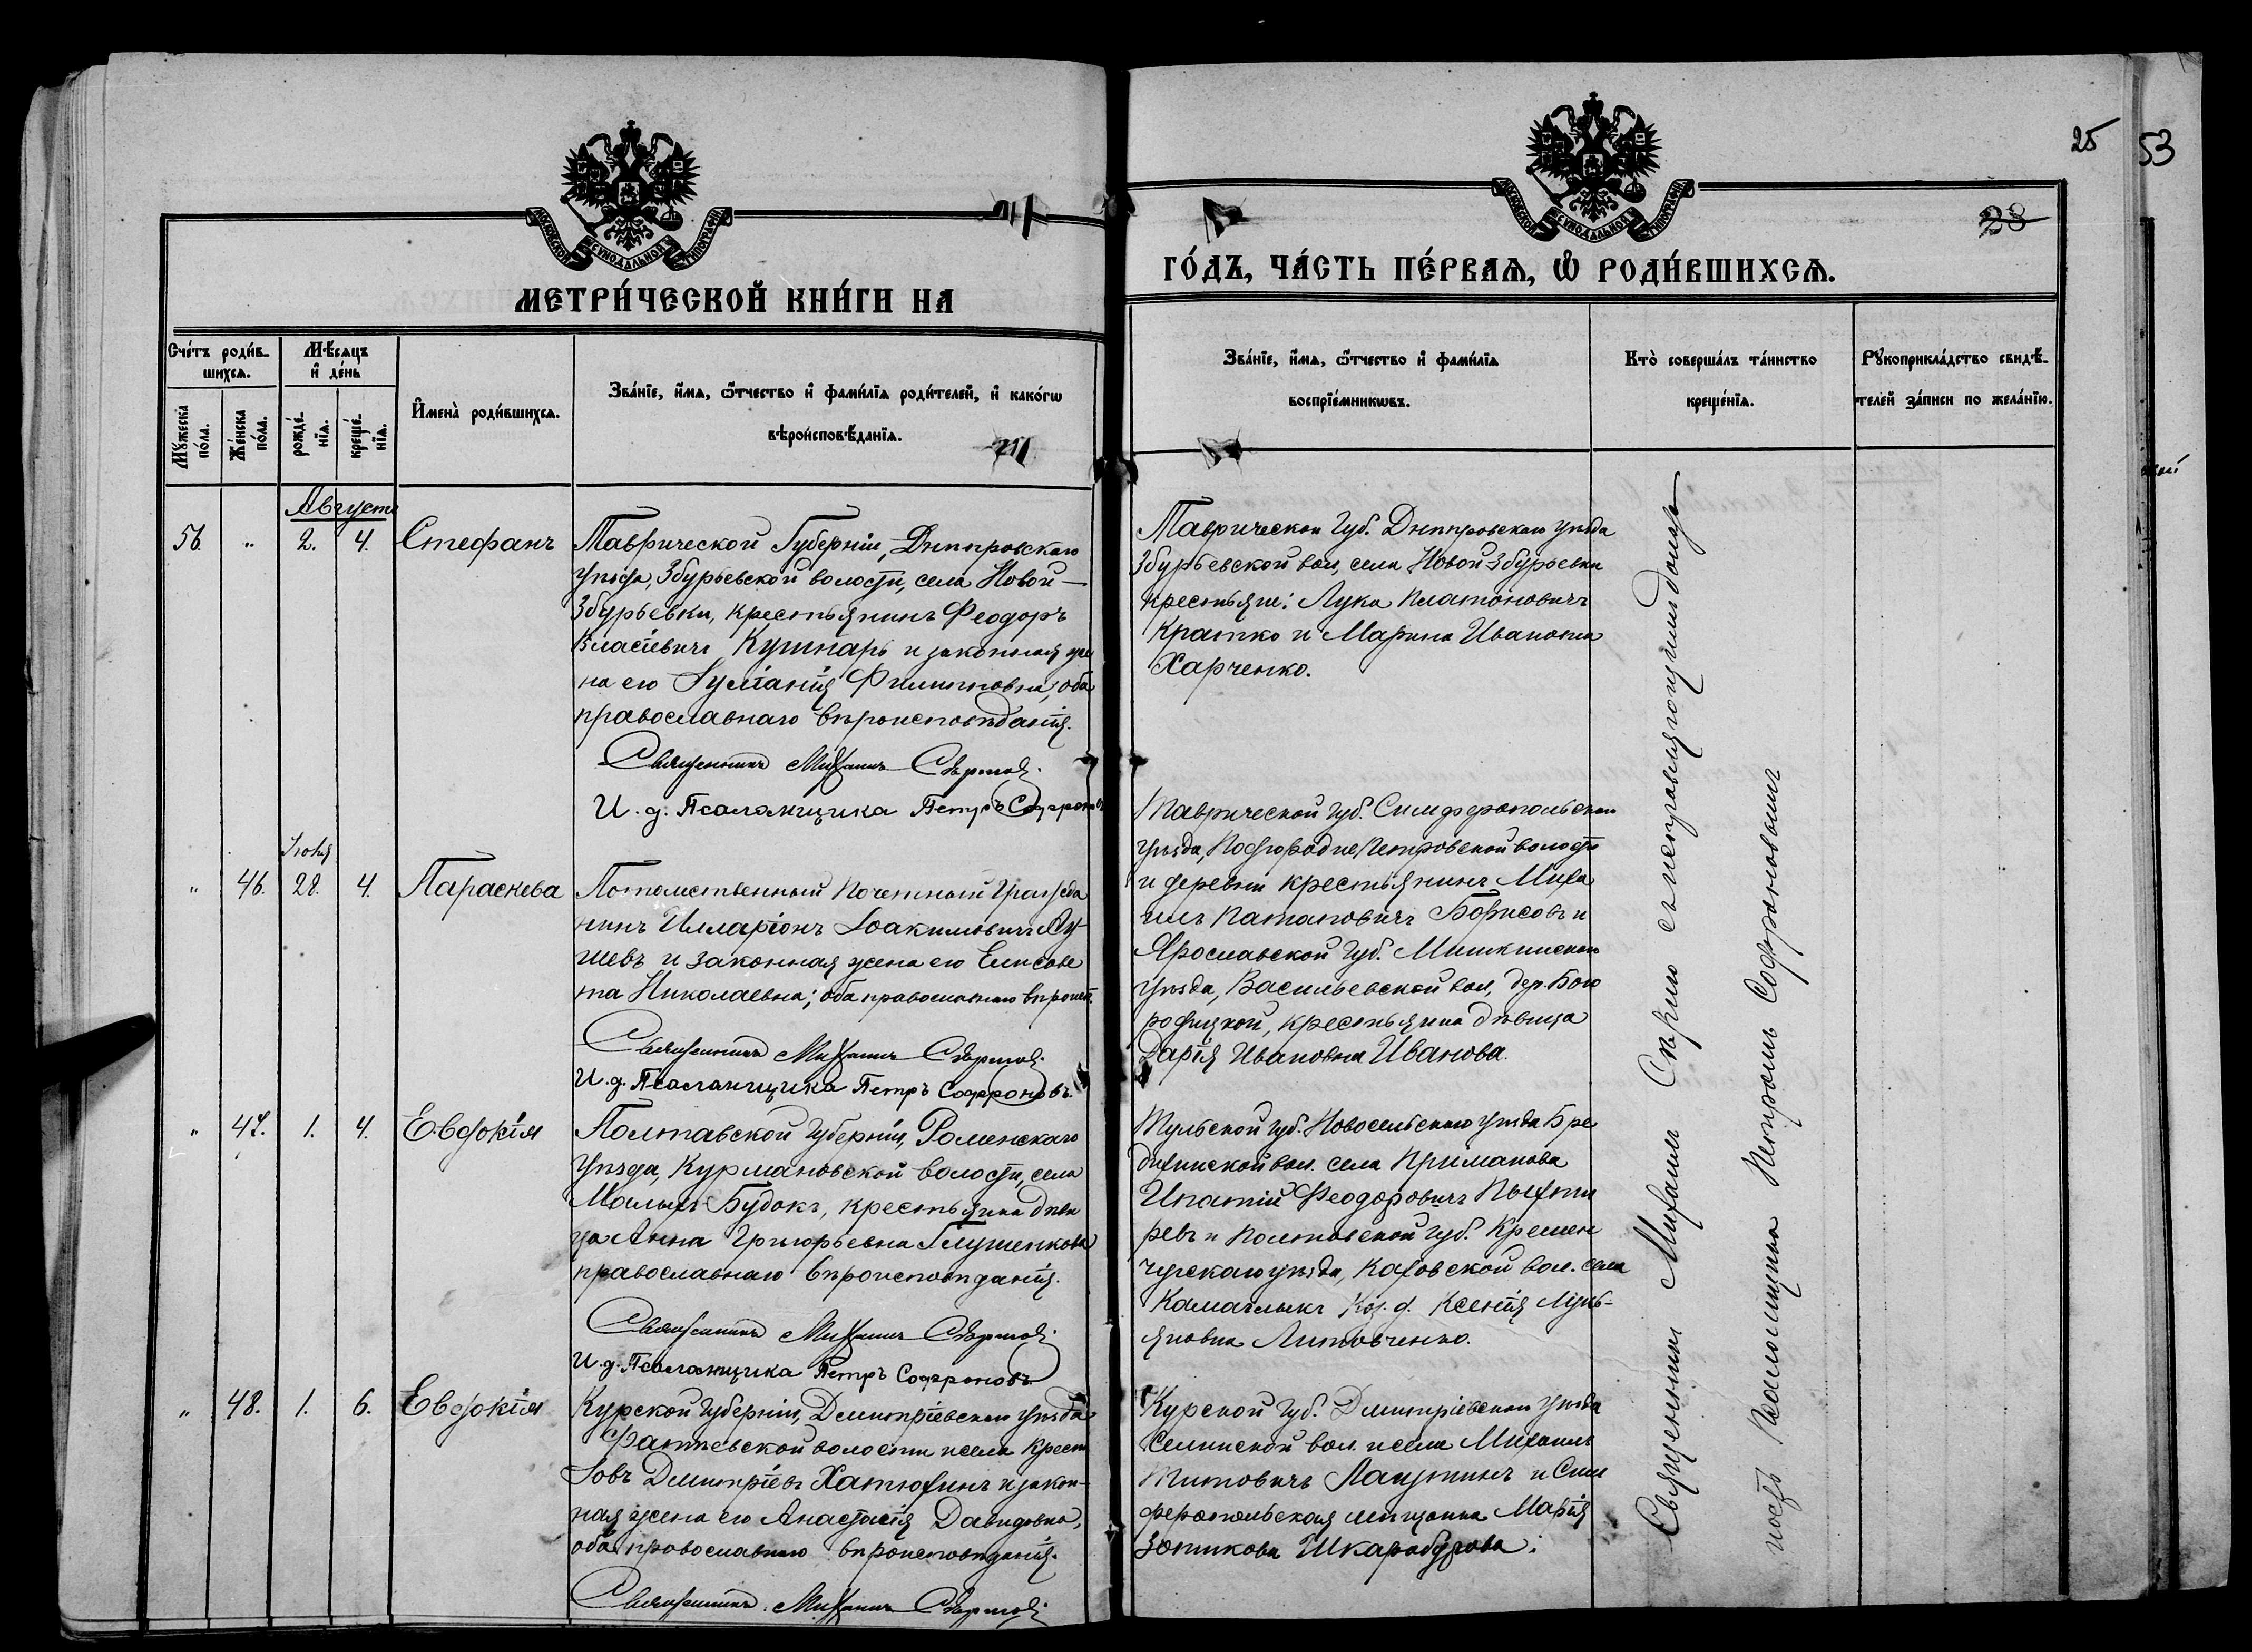 25
53
28
МОСКОВСКОЙ СУНОДАЛЬНОЙ ТИПОГРАФІИ
МОСКОВСКОЙ СУНОДАЛЬНОЙ ТИПОГРАФІИ
МЕТРИ́ЧЕСКОЙ КНИ́ГИ НА
ГО́ДЪ, ЧА́СТЬ ПЕ́РВАѦ, Ѡ РОДИ́ВШИХСѦ.
Сче́тъ роди́в-
шихсѧ.
Мѣ́сѧцъ
и де́нь
Мꙋ́жеска по́ла.
Же́нска по́ла.
рожде́-
нїѧ.
креще́-
нїѧ.
И҆мена̀ роди́вшихсѧ.
Зва́нїе, и҆́мѧ, ѻ҆́тчество и҆ фами́лїѧ роди́телей, и҆ како́гѡ
вѣроисповѣ́данїѧ.
Зва́нїе, и҆́мѧ, ѻ҆́тчество и҆ фами́лїѧ
воспрїе́мникѡвъ.
Кто̀ соверша́лъ та́инство
креще́нїѧ.
Рꙋкоприкла́дство свидѣ́-
телей за́писи по жела́нїю.
Августъ
56. " 2. 4. Стефанъ
Таврической Губерніи, Днѣпровскаго
уѣзда, Збурьевской волости, села Новой-
Збурьевки, крестьянинъ Феодоръ
Власіевичъ Кушнарь и законная же
на его Іуліанія Филипповна, оба
православнаго вѣроисповѣданія.
Священникъ Михаилъ
И. д. Псаломщика Петръ Софроновъ
Таврической Губ. Днѣпровскаго уѣзда
Збурьевской вол., села Новой-Збурьевки
крестьяне: Лука Платоновичъ
Кратко и Марина Ивановна
Харченко.
Іюня
" 46. 28. 4. Параскева
Потомственный Почетный Гражда
нинъ Илларіонъ Іоакимовичъ
и законная жена его Елисаве
та Николаевна; оба православнаго вѣроисп.
Священникъ Михаилъ
И. д. Псаломщика Петръ Софроновъ.
Таврической Губ. Симферопольскаго
уѣзда, Подгородне Петровской волости
и деревни крестьянинъ Миха
илъ Патаповичъ Борисовъ и
Ярославской Губ. Мышкинскаго
уѣзда, Васильевской вол., дер. Бого
родицкой, крестьянка дѣвица
Дарія Ивановна Иванова.
" 47. 1. 4. Евдокія
Полтавской Губерніи, Роменскаго
уѣзда, Курмановской волости, села
Малыхъ Будокъ, крестьянка дѣви
ца Анна Григорьевна Глушенкова
православнаго вѣроисповѣданія.
Священникъ Михаилъ
И. д. Псаломщика Петръ Софроновъ
Тульской Губ. Новосильскаго уѣзда Бре
дихинской вол. села Приманова
Ипатій Феодоровичъ Пыхты
ревъ и Полтавской Губ. Кремен
чугскаго уѣзда, Каховской вол. села
Камаглыкъ Коз. д. Ксенія Лукь-
яновна Литовченко.
" 48. 1. 6. Евдокія
Курской Губерніи, Дмитріевскаго уѣзда
волости и села Крест.
Іовъ Дмитріевъ Хатюхинъ и закон-
ная жена его Анастасія Давидовна,
оба православнаго вѣроисповѣданія.
Священникъ Михаилъ
Курской Губ. Дмитріевскаго уѣзда
Селинской вол. и села Михаилъ
Титовичъ Лапутинъ и Сим
феропольская мѣщанка Марія
Зотикова Шкарабурова.
Священникъ Михаилъ
ность Псаломщика Петромъ Софроновымъ